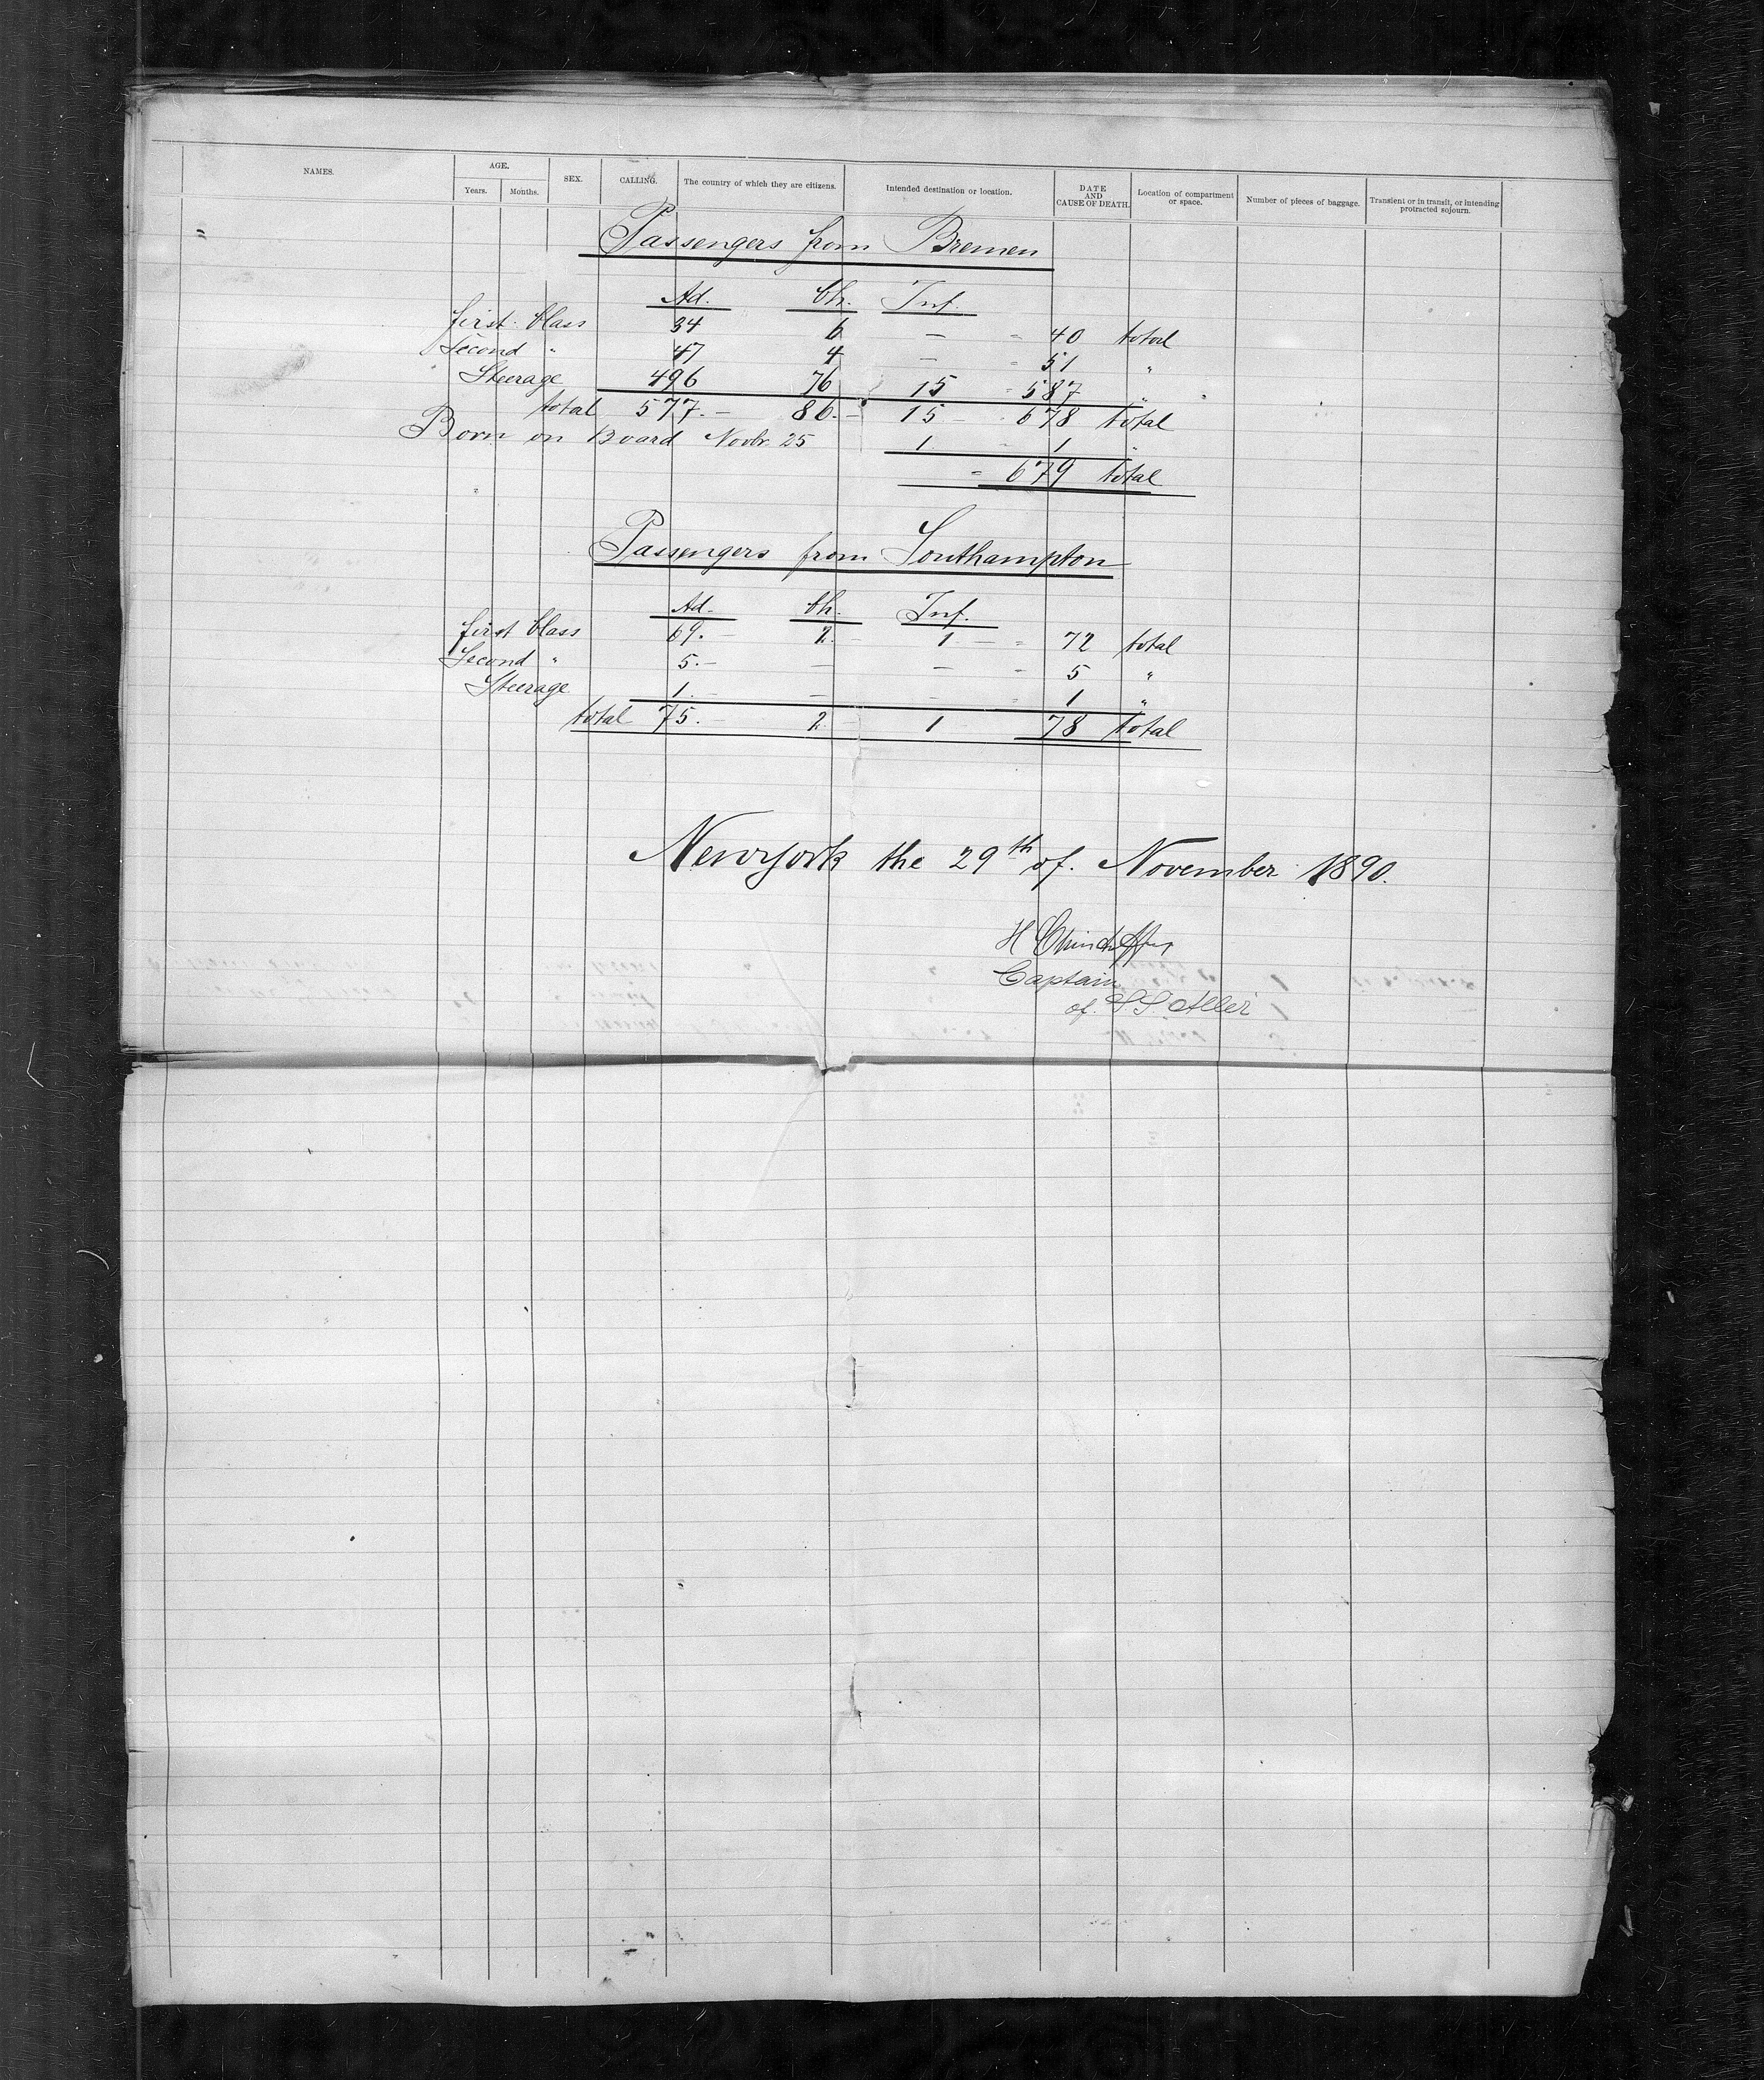 NAMES. AGE. Years. Months. SEX. CALLING. The country of which they are citizens. Intended destination or location. DATE AND CAUSE OF DEATH. Location of compartment or space. Number of pieces of baggage. Transient or in transit, or intending protracted sojourn.
Passengers from Bremen
Ad. Ch. Inf.
first Class 34 6 — = 40 total
Second " 47 4 — = 51 "
Steerage 496 76 15 = 587 "
total 577.— 86.— 15 — 678 total
Born on Board Novbr. 25 1 — 1 "
= 679 total
Passengers from Southampton
Ad. Ch. Inf.
first Class 69.— 2.— 1.— = 72 total
Second " 5.— — — = 5 "
Steerage 1.— — — 1 "
total 75.— 2.— 1 78 total
Newyork the 29th of. November 1890.
H
Captain
of. SS Aller